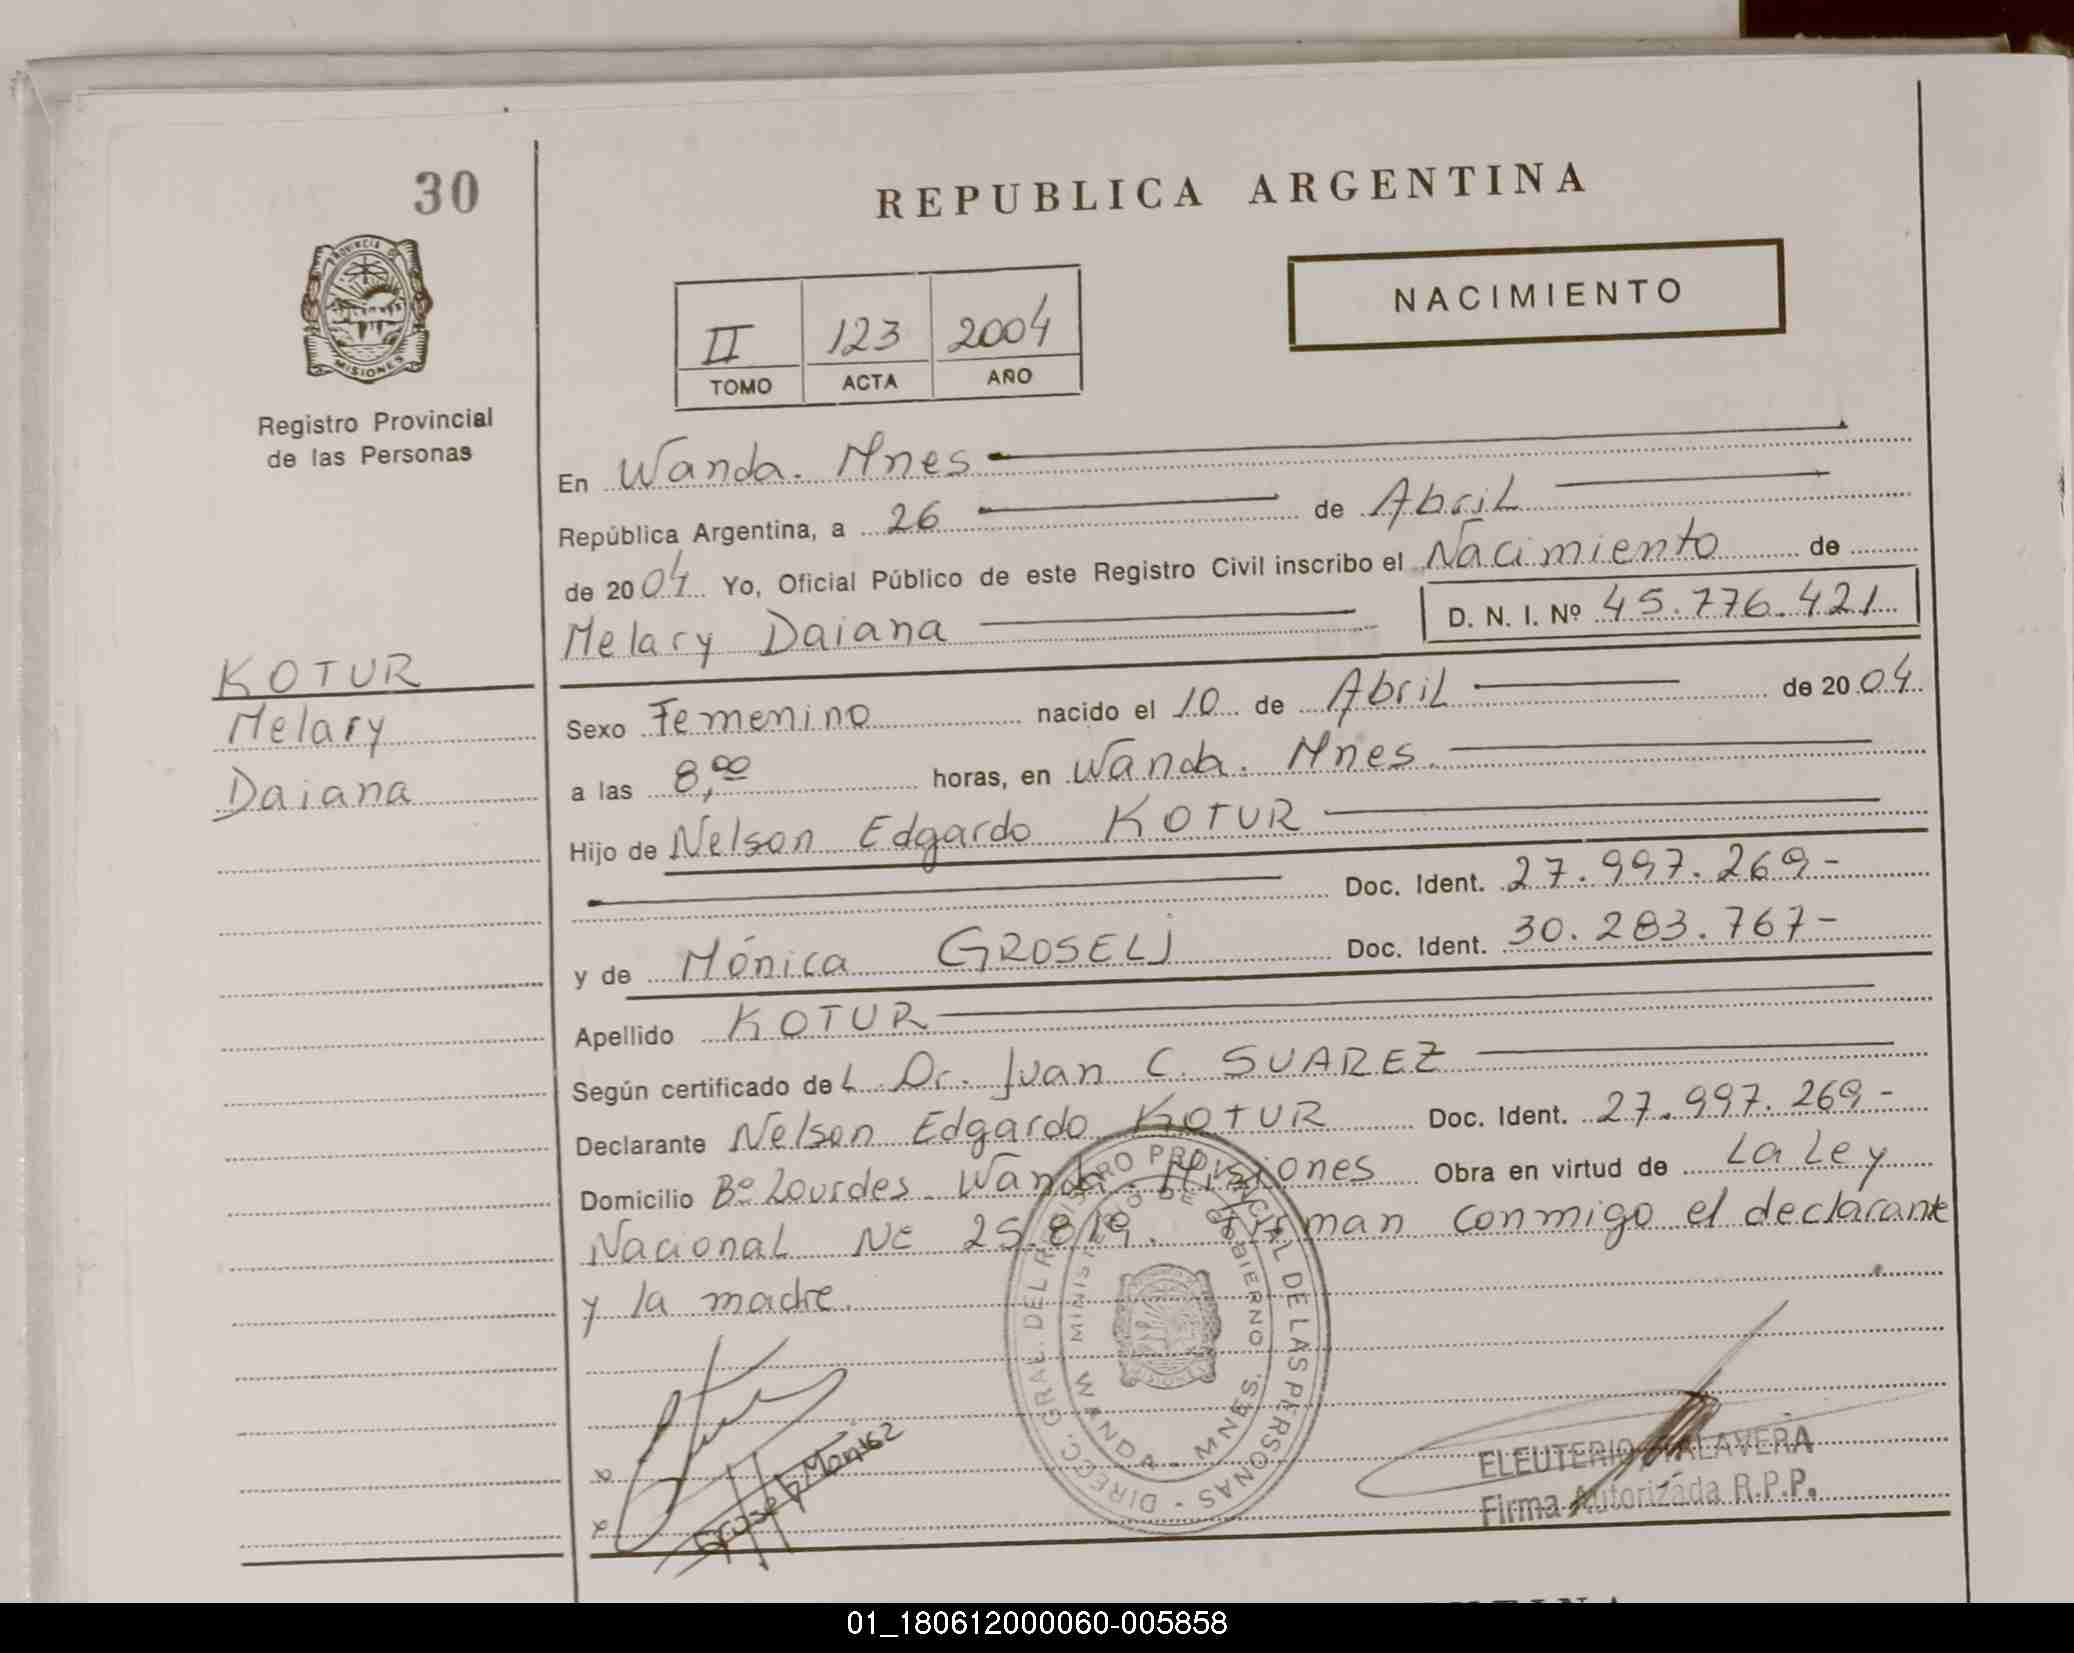 30
REPUBLICA ARGENTINA
PROVINCIA DE
MISIONES
Registro Provincial
de las Personas
NACIMIENTO
II 123 2004
TOMO ACTA AÑO
En Wanda. Mnes
República Argentina, a 26 de Abril
de 2004 Yo, Oficial Público de este Registro Civil inscribo el Nacimiento de
Melary Daiana D. N. I. Nº 45.776.421
KOTUR
Melary
Daiana
Sexo Femenino nacido el 10 de Abril de 2004
a las 8,00 horas, en Wanda. Mnes.
Hijo de Nelson Edgardo KOTUR
Doc. Ident. 27.997.269-
y de Mónica GROSELJ Doc. Ident. 30.283.767-
Apellido KOTUR
Según certificado del Dr. Juan C. SUAREZ
Declarante Nelson Edgardo KOTUR Doc. Ident. 27.997.269-
Domicilio Bº Lourdes. Wanda. Misiones Obra en virtud de La Ley
Nacional Nº 25.819. Firman conmigo el declarante
y la madre.
DIRECC. GRAL. DEL REGISTRO PROVINCIAL DE LAS PERSONAS -
MINISTERIO DE GOBIERNO
WANDA - MNES.
ELEUTERIO TALAVERA
Firma Autorizada R.P.P.
01_180612000060-005858